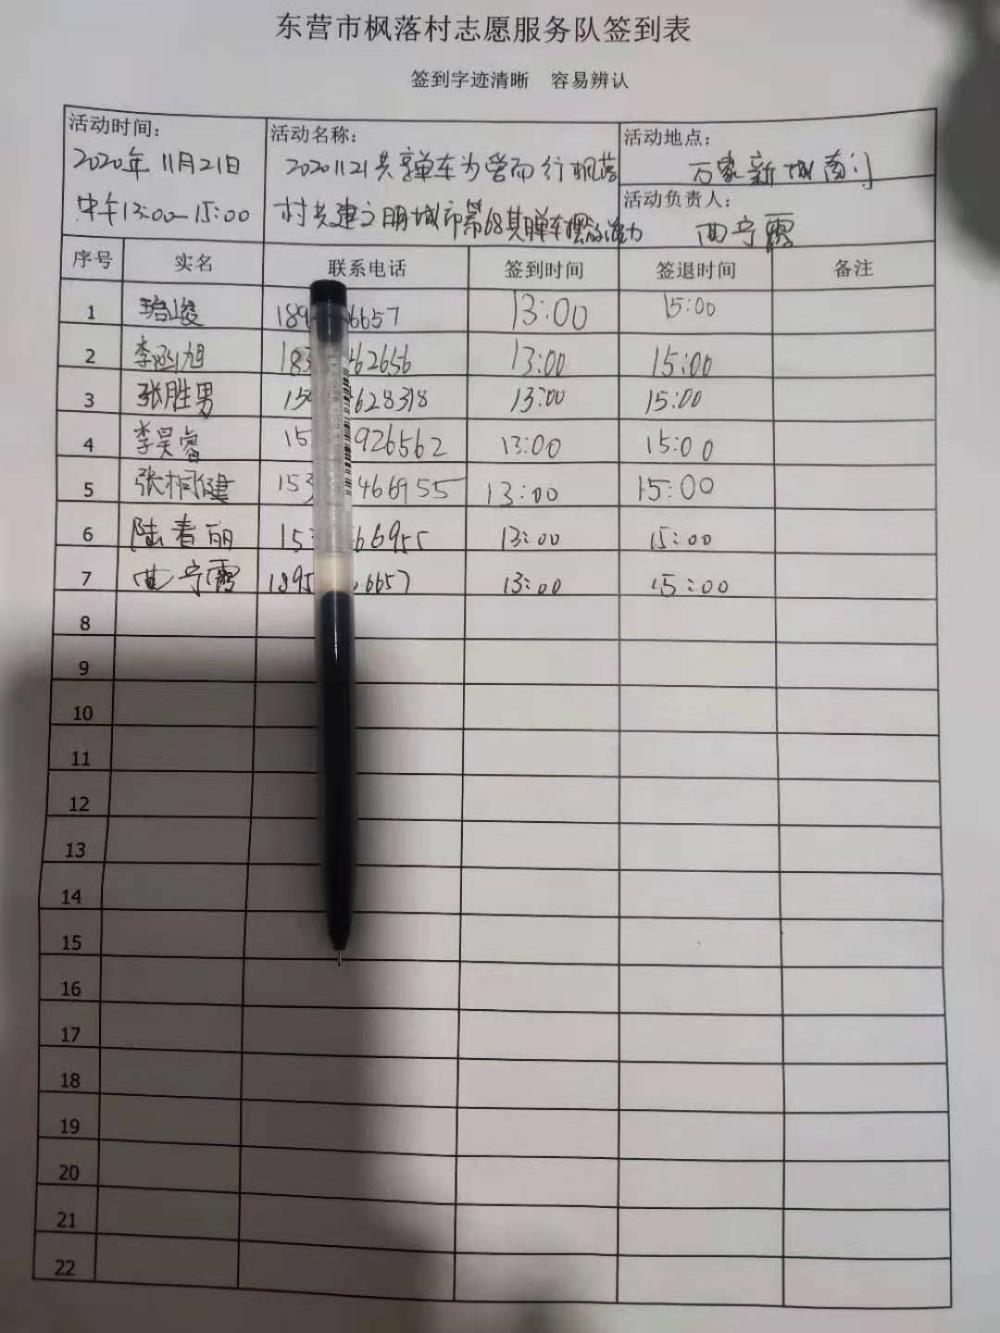 东营市枫落村志愿服务队签到表
签到字迹清晰 容易辨认
活动时间: 活动名称: 活动地点:
2020年11月21日 20201121共享单车为营而行枫落 万家新城南门
中午13:00-15:00 村共建文明城市第68期单车摆放活动
活动负责人:
曲宁霞
序号 实名 联系电话 签到时间 签退时间 备注
1 189 6657 13:00 15:00
2 李函旭 183 62656 13:00 15:00
3 张胜男 15 628318 13:00 15:00
4 李昊睿 15 926562 13:00 15:00
5 张桐健 153 466955 13:00 15:00
6 陆春丽 153 66955 13:00 15:00
7 曲宁霞 1895 6657 13:00 15:00
8
9
10
11
12
13
14
15
16
17
18
19
20
21
22